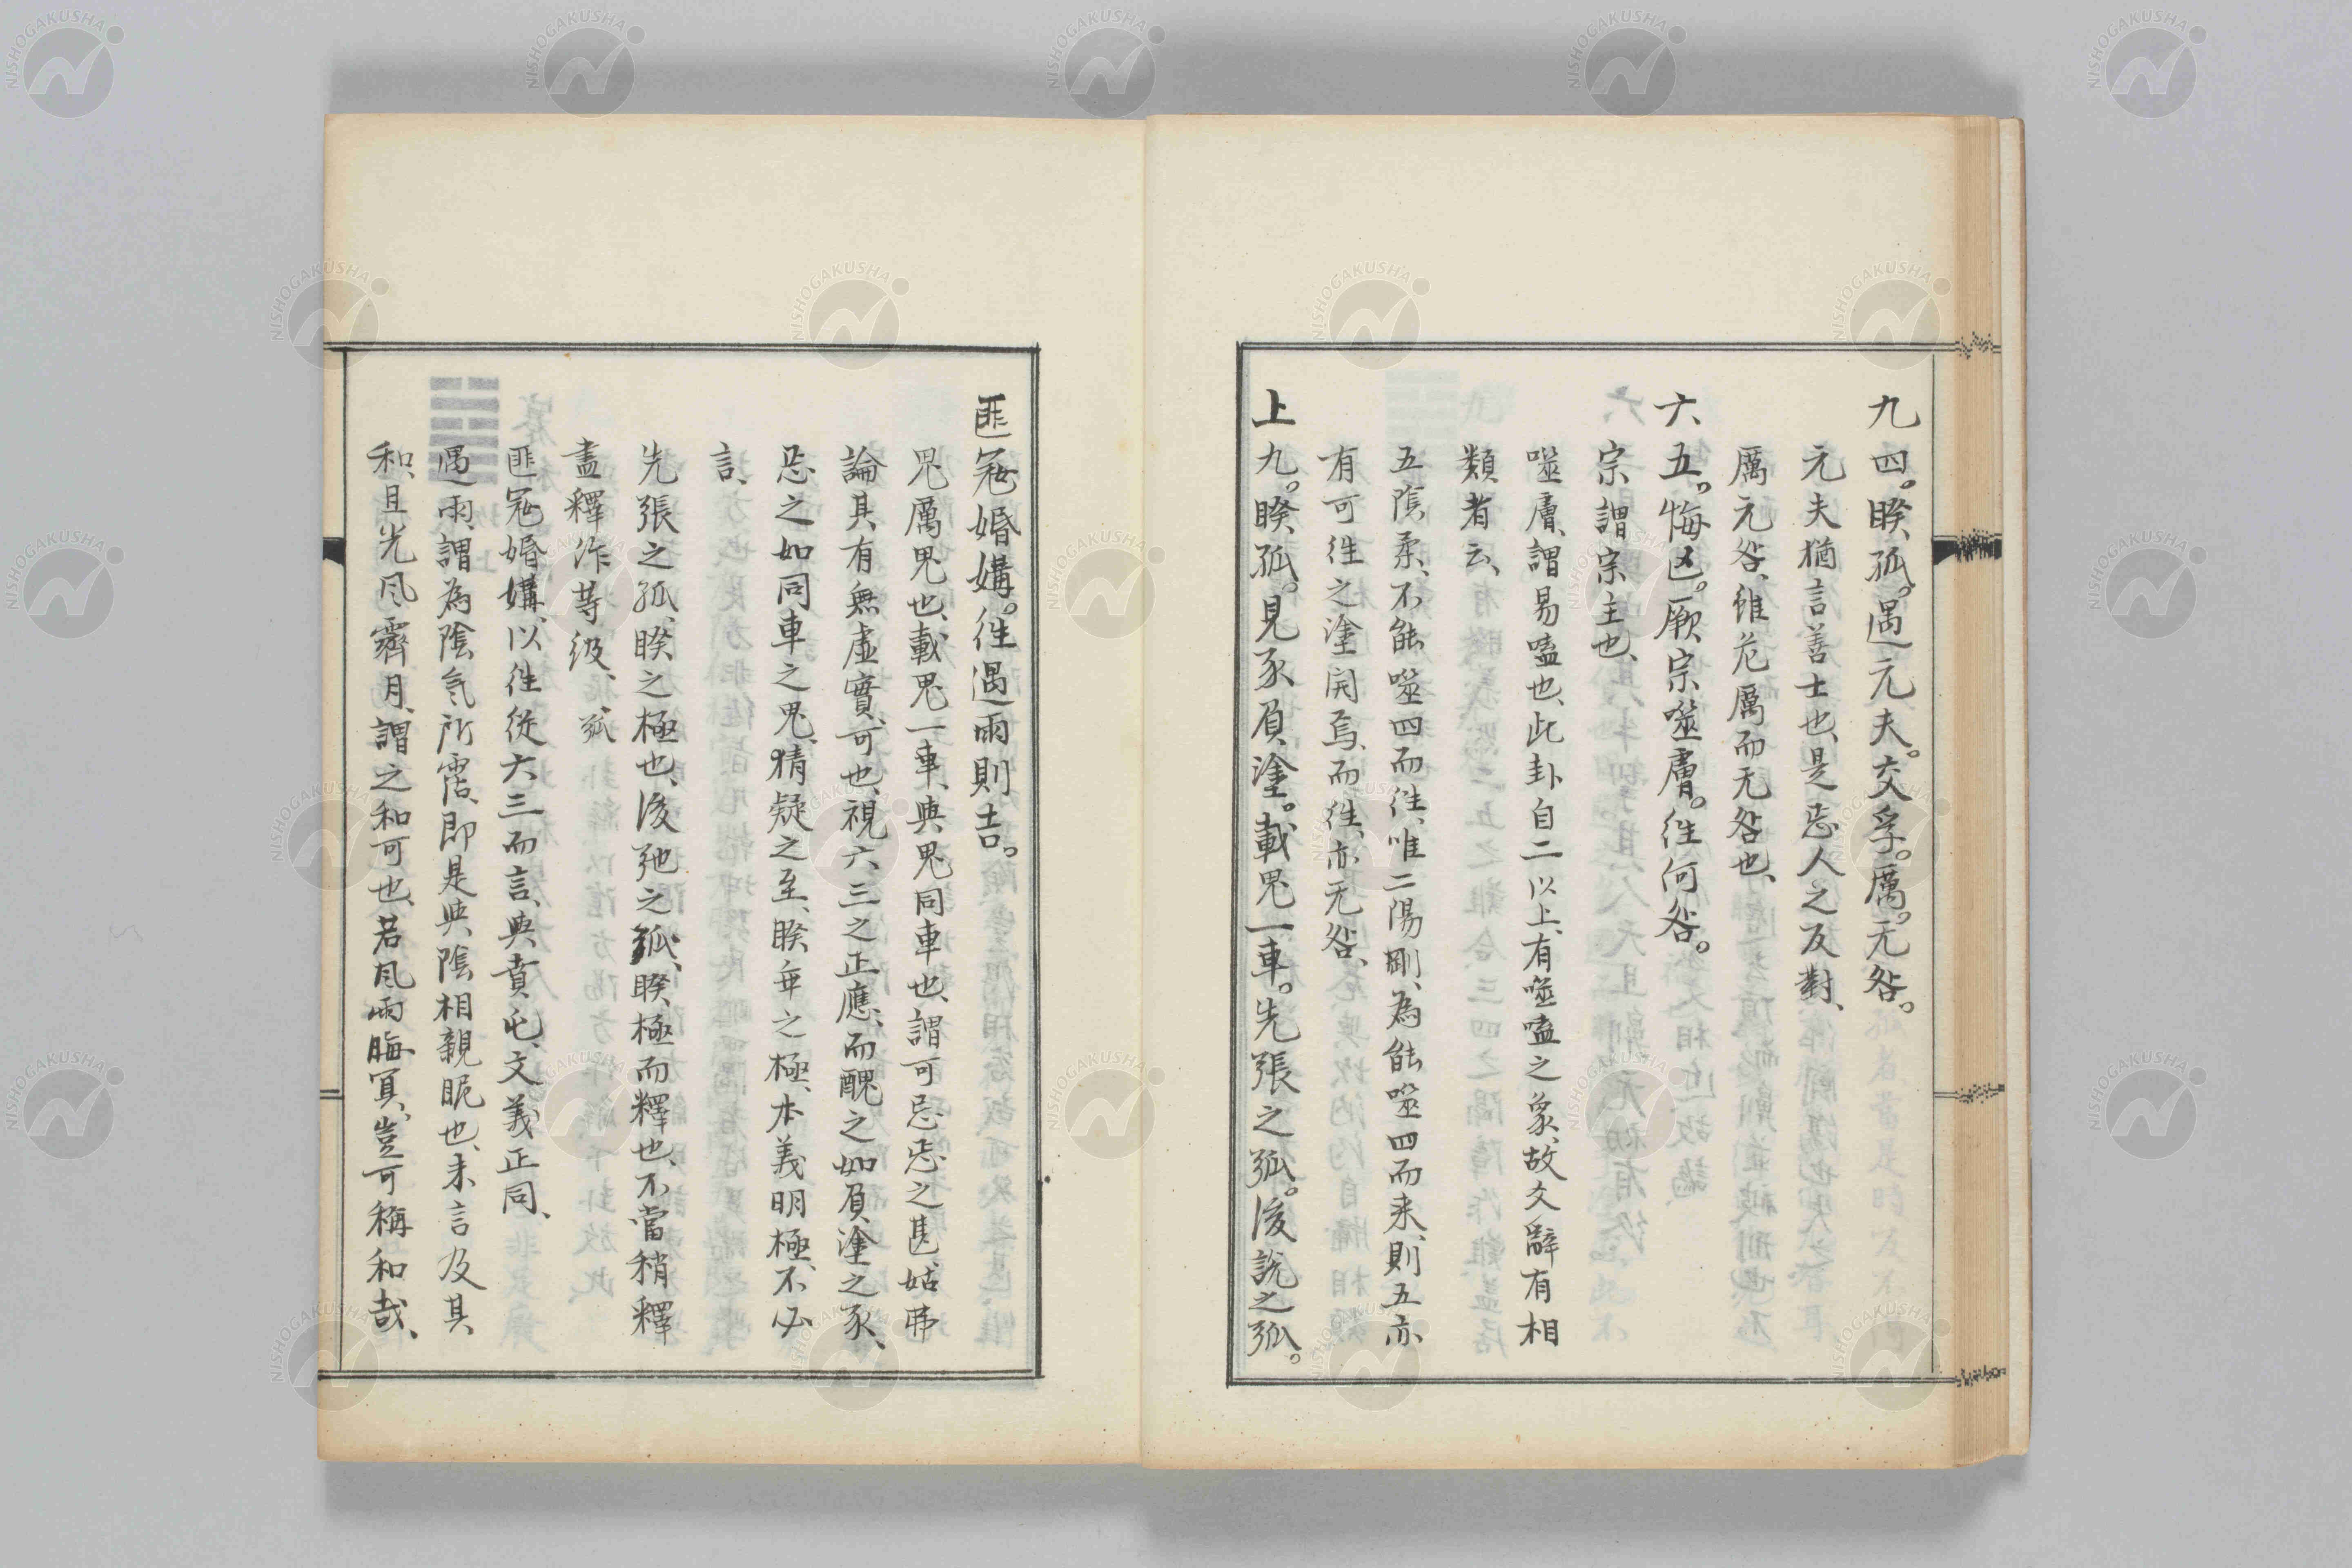 九四。睽、孤。遇元夫。交孚。厲。无咎。
元夫猶言善士也、是惡人之反對、
厲无咎、雖危厲而无咎也、
六五。悔亡。厥宗噬膚。往何咎。
宗謂宗主也、
噬膚、謂易嗑也、此卦自二以上、有噬嗑之象、故爻辭有相
類者云、
五陰柔、不能噬四而往、唯二陽剛、為能噬四而来、則五亦
有可往之塗開焉、而往、亦无咎、
上九。睽、孤。見豕負塗。載鬼一車。先張之弧。後說之弧。
匪寇婚媾。往遇雨則吉。
鬼厲鬼也、載鬼一車、與鬼同車也、謂可忌惡之甚、姑弗
論其有無虛實、可也、視六三之正應、而醜之如負塗之豕、
惡之如同車之鬼、猜疑之至、睽乖之極、本義明極、不必
言、
先張之弧、睽之極也、後弛之弧、睽極而釋也、不當稍釋
盡釋作等級、弧
匪寇婚媾、以往從六三而言、與賁屯、文義正同、
遇雨、謂為陰氣所霑、即是與陰相親昵也、未言及其
和、且光風霽月、謂之和可也、若風雨晦冥、豈可稱和哉、
NISHOGAKUSHA